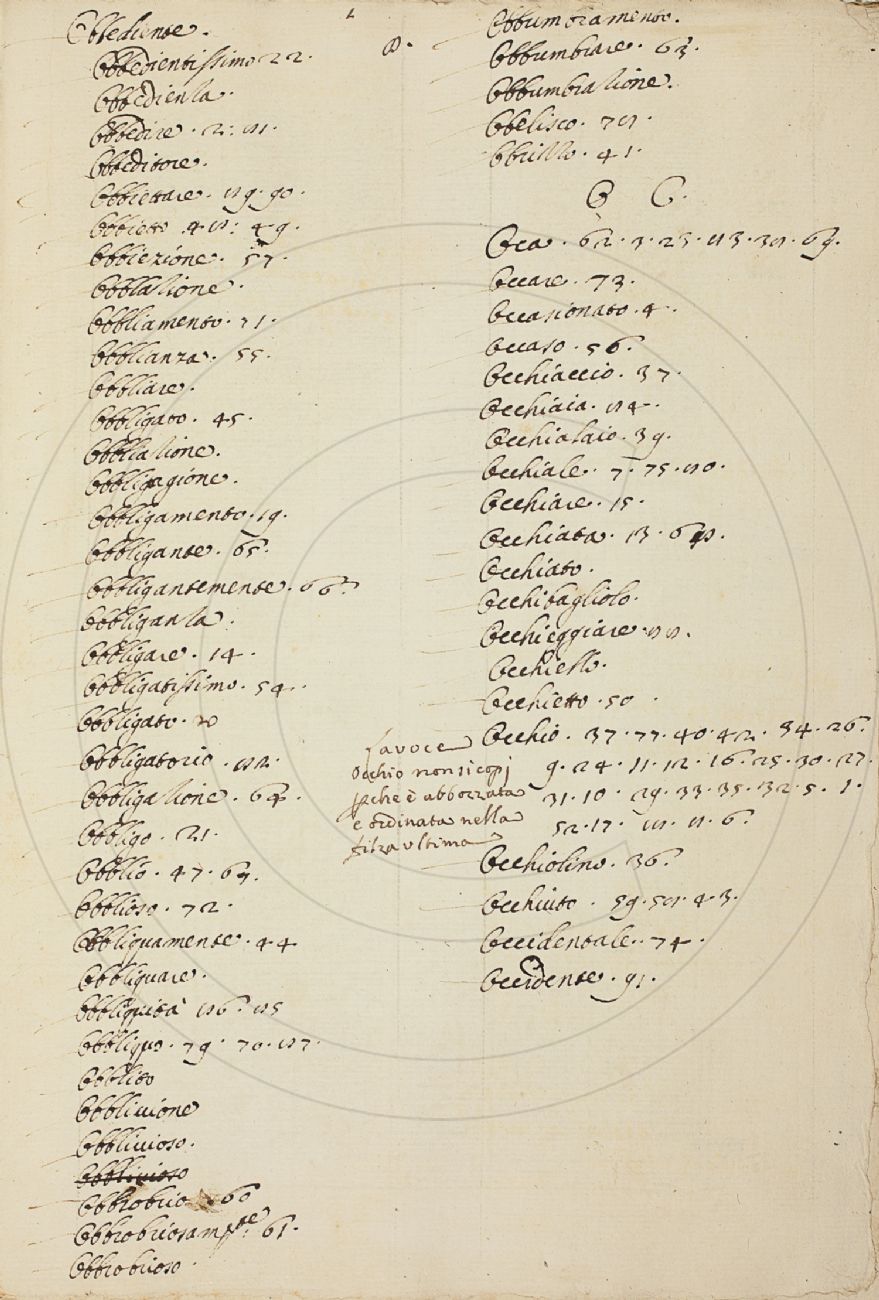 Obbediente.
Obbedientissimo 22.
Obbedienza.
Obbedire. 2: 81.
Obbeditore.
Obbiettare. 89. 90.
Obbietto. 48: 49.
Obbiezione. 57.
Obblazione.
Obbliamento. 71.
Obblianza. 55.
Obbliare.
Obbligato. 45.
Obbliazione.
Obbligagione.
Obbligamento. 19.
Obbligante. 65.
Obbligantemente. 66.
Obbliganza.
Obbligare. 14.
Obbligatissimo. 54.
Obbligato. 20
Obbligatorio. 82.
Obbligazione. 64.
Obbligo. 21.
Obblio. 47. 67.
Obblioso. 72.
Obbliquamente. 44
Obbliquare.
Obbliquità 86. 85
Obbliquo. 79. 70. 87.
Obblito
Obblivione
Obblivioso.
Obblivioso
Obbrobrio. 60
Obbrobriosamte. 61.
Obbrobrioso.
O.
Obbumbramento.
Obbumbrare. 63.
Obbumbrazione.
Obelisco. 78.
Obrizzo. 41.
O C.
Oca. 62. 3. 23. 83. 38. 69.
Occare. 73.
Occasionato. 4.
Occaso. 56.
Occhiaccio. 37.
Occhiaia. 84.
Occhialaio. 39.
Occhiale. 7. 75. 80.
Occhiare. 15.
Occhiata. 13. 68.
Occhiato.
Occhibagliolo.
Occhieggiare. 88.
Occhiello.
Occhietto. 50.
Occhio. 37. 77. 40. 42. 34. 26.
9. 24. 11. 12. 16. 25. 30. 27.
31. 10. 29. 33. 35. 32. 5. 1.
52. 17. 18. 8. 6.
la voce
Occhio non si copj
pche è abbozzata
e ordinata nella
filza ultima
Occhiolino. 36.
Occhiuto. 59. 58. 43.
Occidentale. 74.
Occidente. 91.